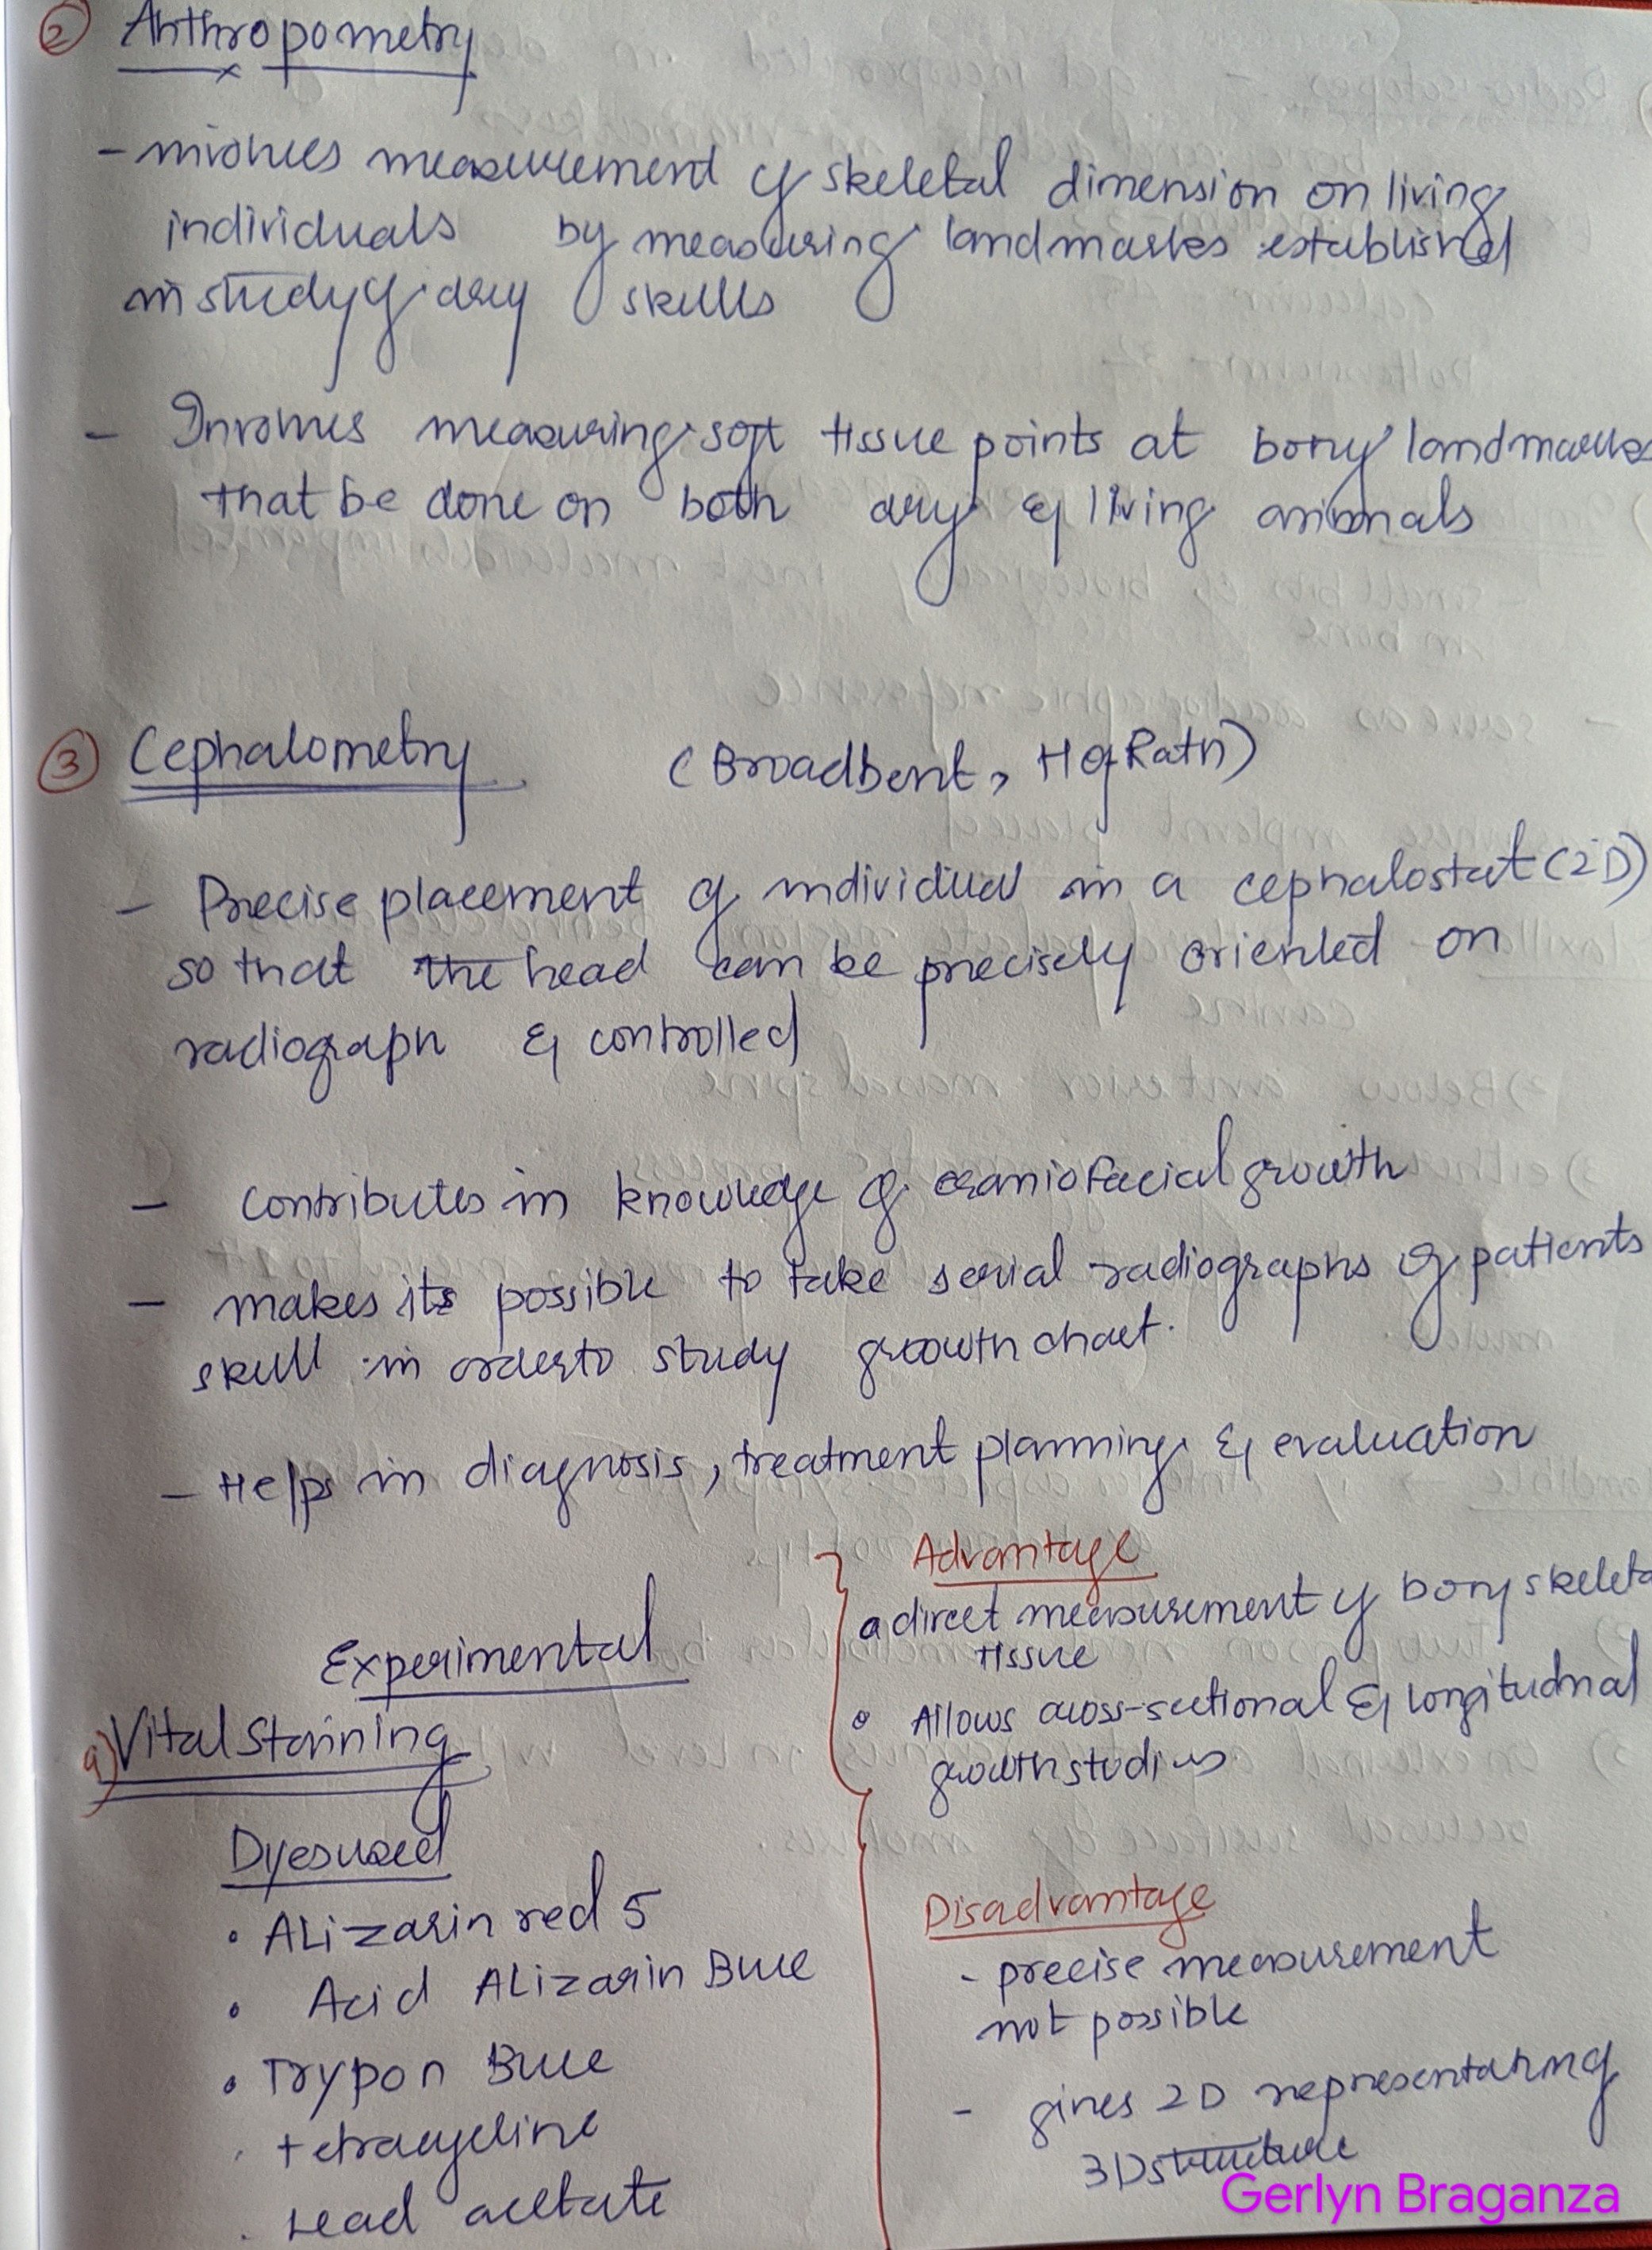 ② Anthropometry
- involves measurement of skeletal dimension on living
individuals by measuring landmarks established
in study of dry skulls
- Involves measuring soft tissue points at bony landmarks
that be done on both dry & living animals
③ Cephalometry (Broadbent, HofRath)
- Precise placement of individual in a cephalostat (2D)
so that the head can be precisely oriented on
radiograph & controlled
- contributes in knowledge of craniofacial growth
- makes its possible to take serial radiographs of patients
skull in order to study growth chart.
- Helps in diagnosis, treatment planning & evaluation
Experimental
a) Vital Staining
Dyes used
• Alizarin red S
• Acid Alizarin Blue
• Trypon Blue
· tetracycline
· Lead acetate
Advantage
direct measurement of bony skeleta
tissue
• Allows cross-sectional & longitudinal
growth studies
Disadvantage
- precise measurement
not possible
- gives 2D representating
3D structure
Gerlyn Braganza